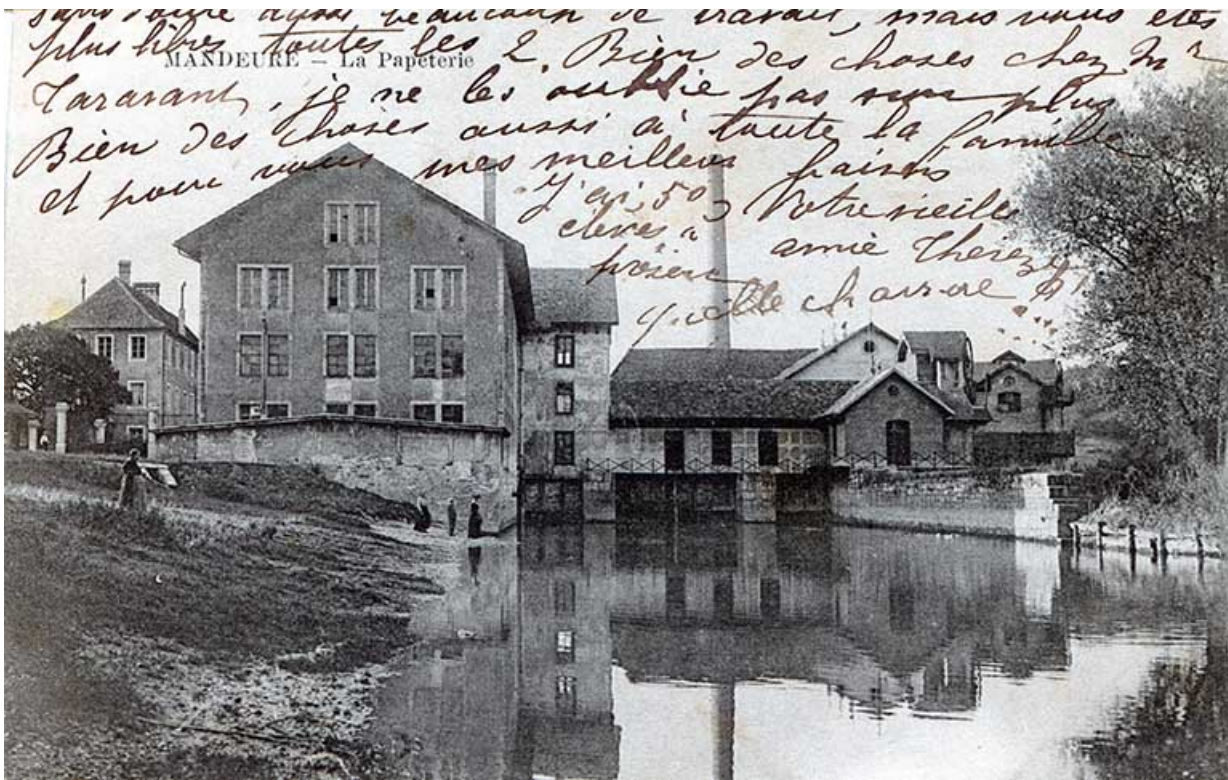 aussi beaucoup de travail, mais vous êtes
plus libres toutes les 2. Bien des choses chez Mr
MANDEURE – La Papeterie
Tararant, je ne les oublie pas non plus
Bien des choses aussi à toute la famille
et pour vous mes meilleurs baisers
J'ai 50 Votre vieille
élèves amie Thérèze
quelle chance